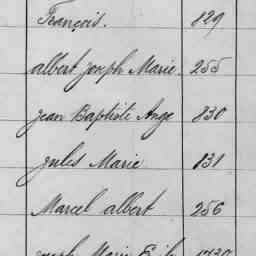 François. 829
albert joseph Marie. 255
jean Baptiste Ange 830
jules Marie 831
Marcel albert 256
joseph Marie